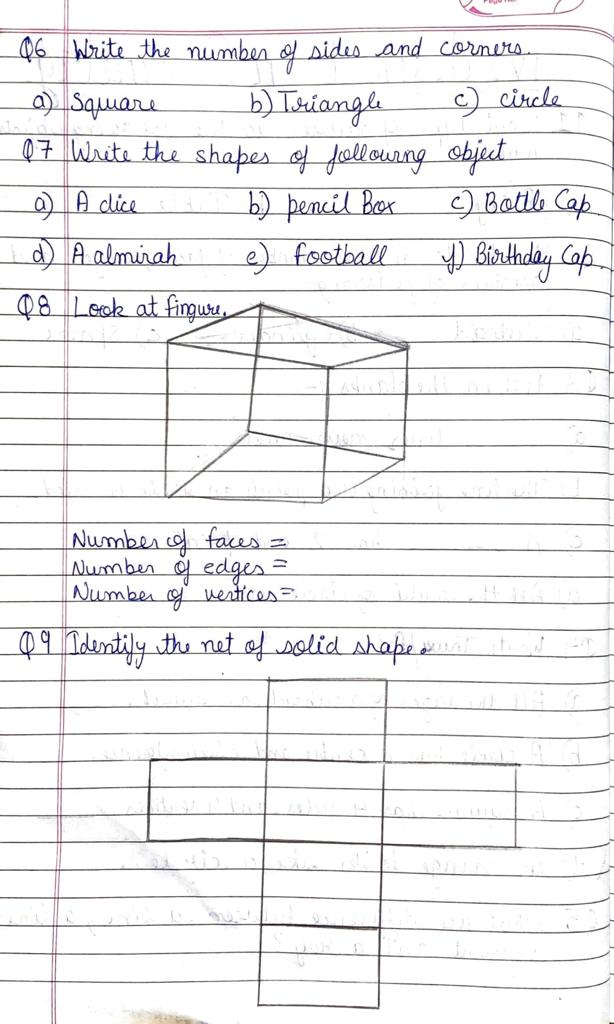 Page No.
Q6 Write the number of sides and corners.
a) Square b) Triangle c) circle
Q7 Write the shapes of following object
a) A dice b) pencil Box c) Bottle Cap
d) A almirah e) football f) Birthday Cap.
Q8 Look at fingure.
Number of faces =
Number of edges =
Number of vertices=
Q9 Identify the net of solid shape.